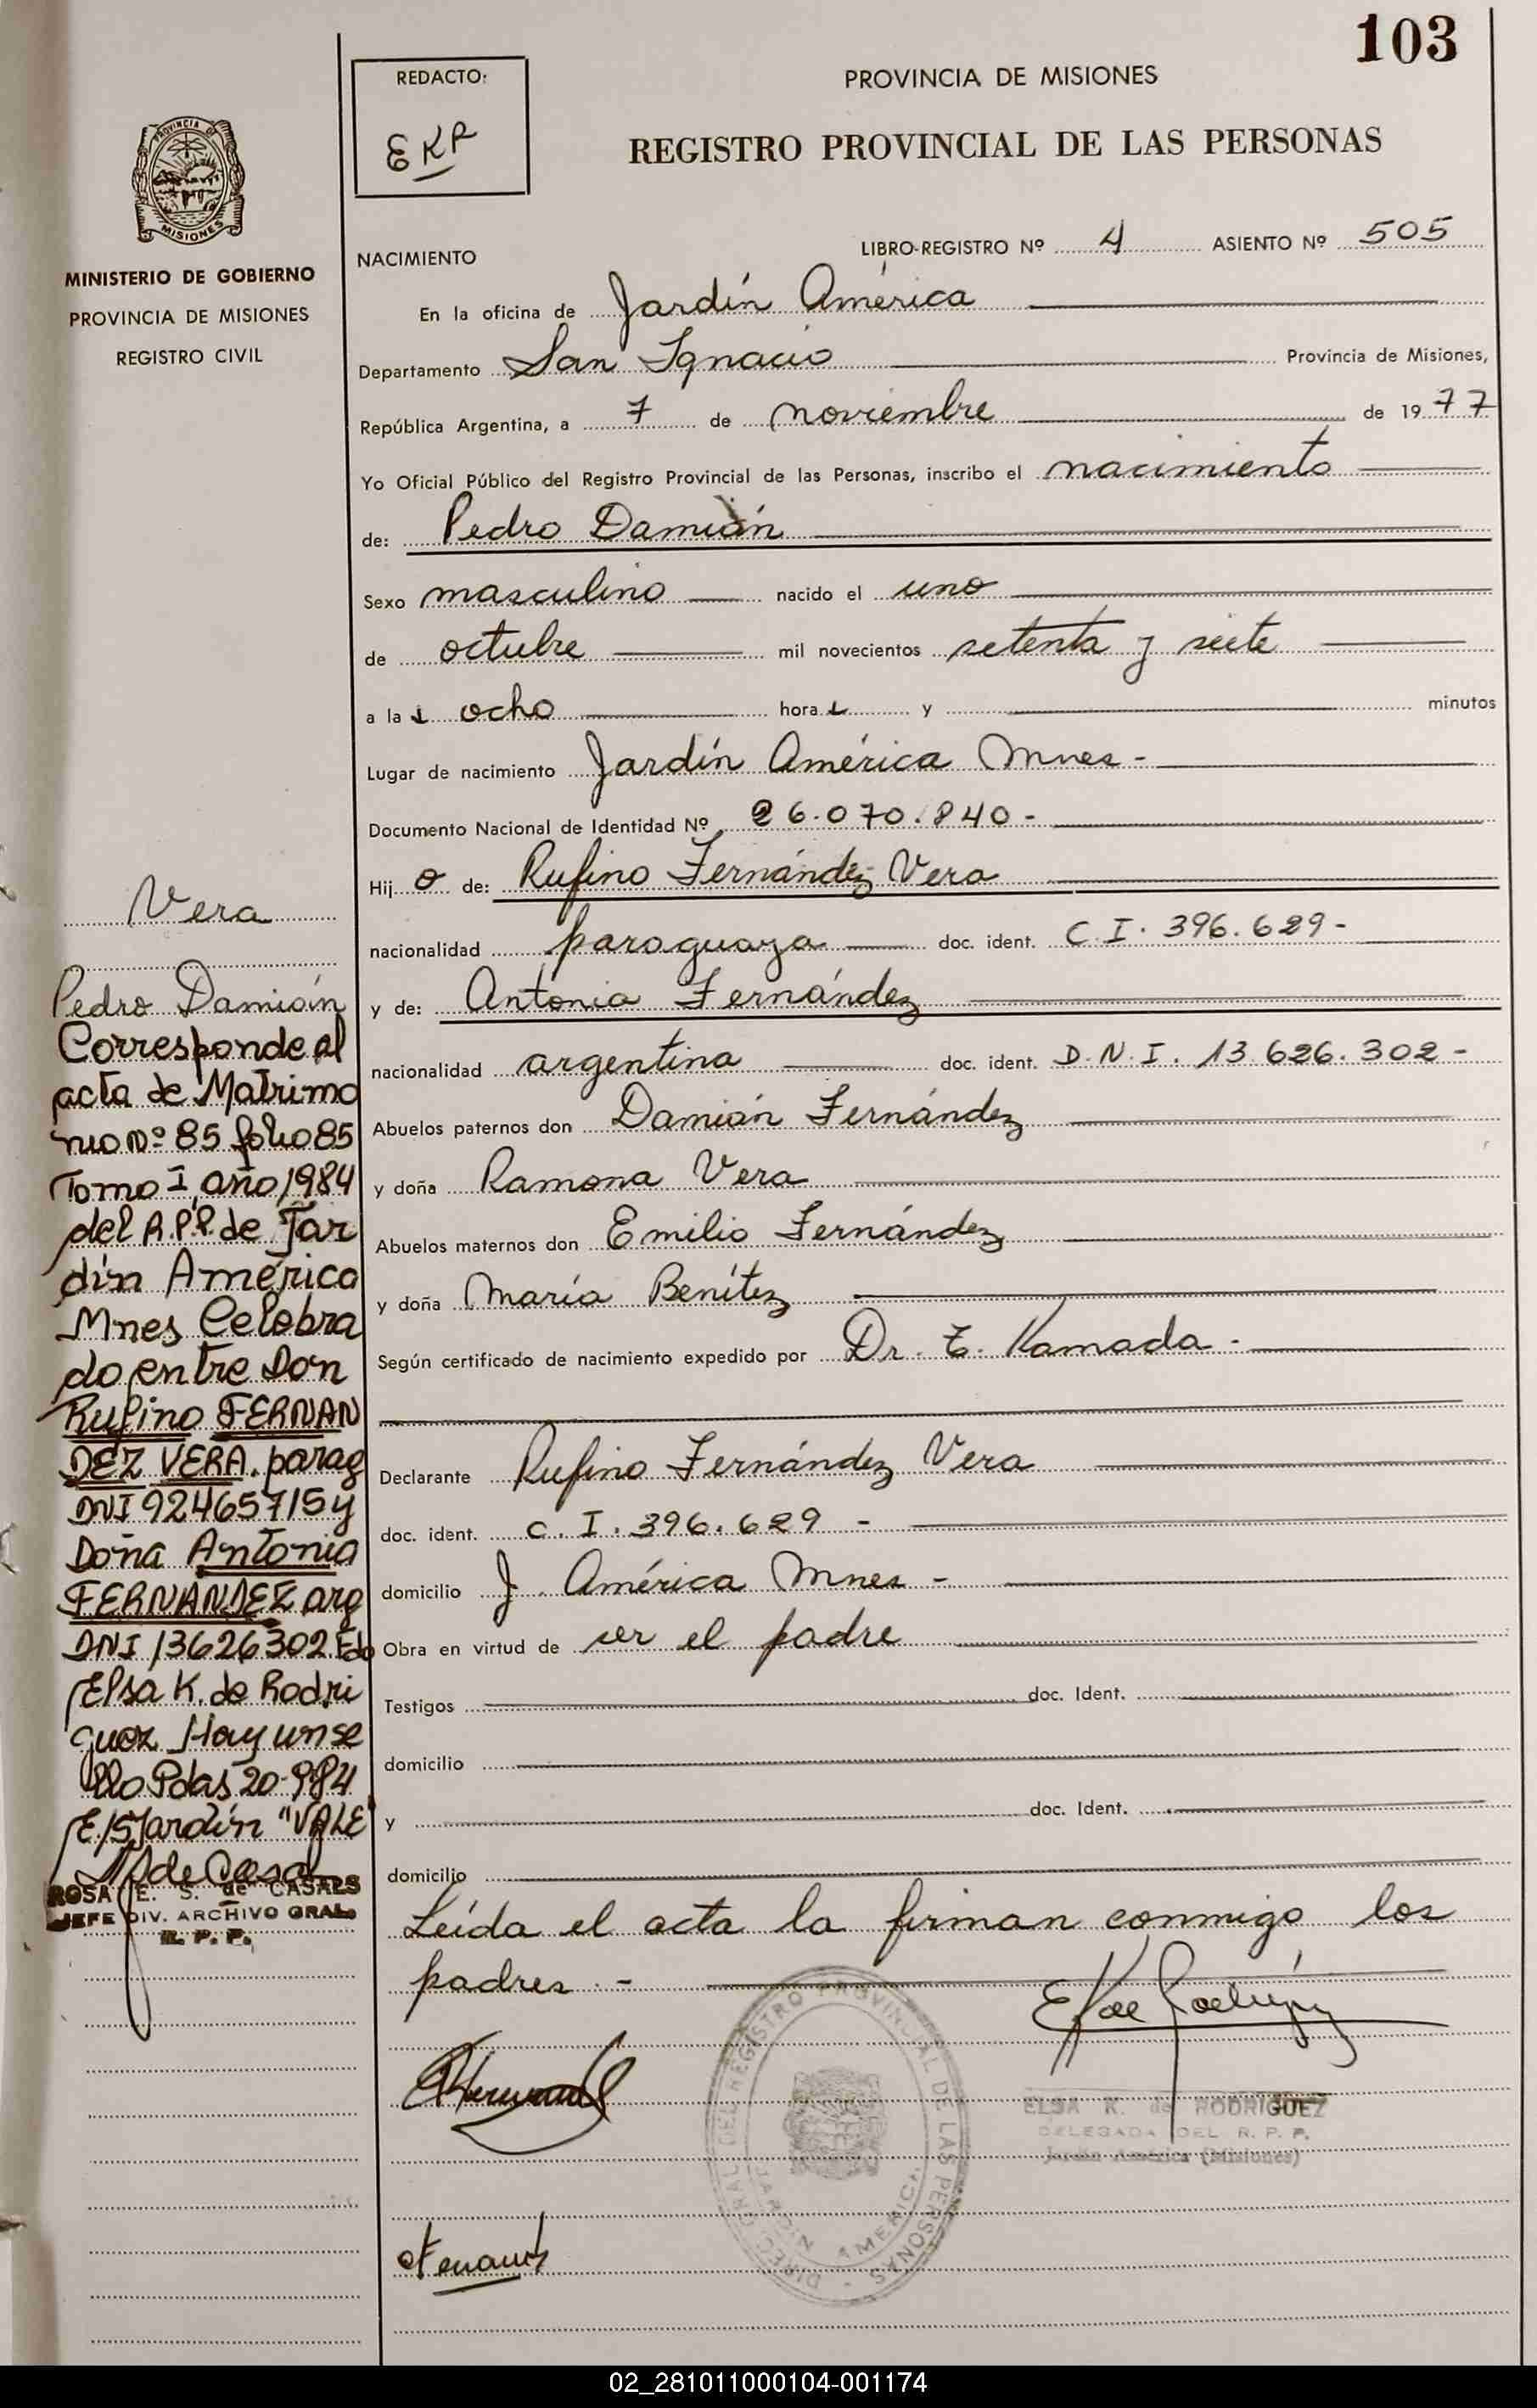 103
REDACTO:
EKR
PROVINCIA DE MISIONES
REGISTRO PROVINCIAL DE LAS PERSONAS
PROVINCIA DE
MISIONES
MINISTERIO DE GOBIERNO
PROVINCIA DE MISIONES
REGISTRO CIVIL
NACIMIENTO
LIBRO-REGISTRO Nº 4 ASIENTO Nº 505
En la oficina de Jardín América
Departamento San Ignacio Provincia de Misiones,
República Argentina, a 7 de noviembre de 1977
Yo Oficial Público del Registro Provincial de las Personas, inscribo el nacimiento
de: Pedro Damián
Sexo masculino nacido el uno
de octubre mil novecientos setenta y siete
a las ocho horas y minutos
Lugar de nacimiento Jardín América Mnes -
Documento Nacional de Identidad Nº 26.070.840 -
Hijo de: Rufino Fernández Vera
nacionalidad paraguaya doc. ident. C.I. 396.629 -
y de: Antonia Fernández
nacionalidad argentina doc. ident. D.N.I. 13.626.302 -
Abuelos paternos don Damián Fernández
y doña Ramona Vera
Abuelos maternos don Emilio Fernández
y doña María Benítez
Según certificado de nacimiento expedido por Dr. T. Kamada -
Declarante Rufino Fernández Vera
doc. ident. C.I. 396.629 -
domicilio J. América Mnes -
Obra en virtud de ser el padre
Testigos doc. Ident.
domicilio
y doc. Ident.
domicilio
Leída el acta la firman conmigo los
padres. -
Vera
Pedro Damián
Corresponde al
acta de Matrimo
nio Nº 85 folio 85
Tomo I año 1984
del R.P.P. de Jar
dín América
Mnes Celebra
do entre Don
Rufino FERNAN
DEZ VERA. parag
DNI 92465715 y
Doña Antonia
FERNANDEZ arg
DNI 13626302. Fdo
Elsa K. de Rodri
guez Hay un se
llo Pdas 20-9-84
E/S Jardín "VALE"
ROSA E. S. de CASALS
JEFE DIV. ARCHIVO GRAL.
R. P. P.
E K de Rodríguez
ELSA K. de RODRIGUEZ
DELEGADA DEL R. P. P.
Jardín América (Misiones)
DIREC. GRAL DEL REGISTRO PROVINCIAL DE LAS PERSONAS
JARDIN AMERICA
02_281011000104-001174